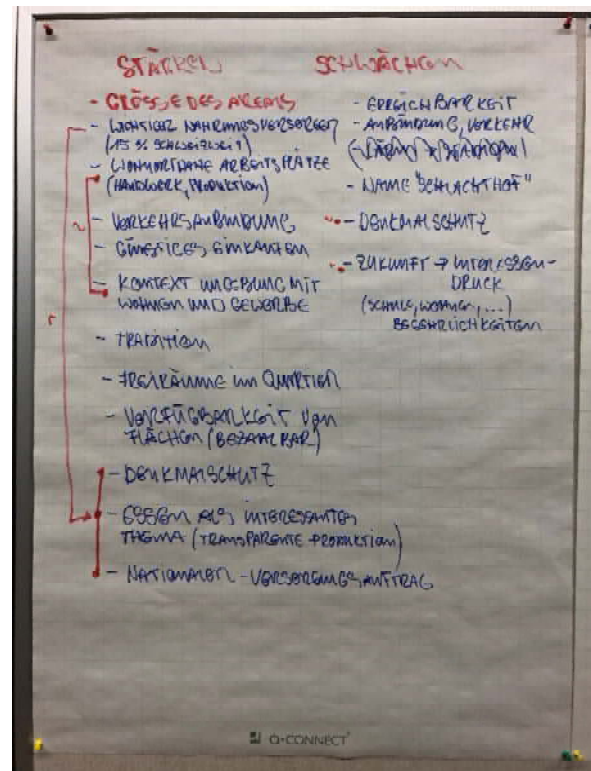 STÄRKEN
- GRÖSSE DES AREALS
- WICHTIGER NAHRUNGSVERSORGER
(15 % SCHWEIZWEIT)
- WOHNORTNAHE ARBEITSPLÄTZE
(HANDWERK, PRODUKTION)
- VERKEHRSANBINDUNG
- GÜNSTIGES EINKAUFEN
- KONTEXT UMGEBUNG MIT
WOHNEN UND GEWERBE
- TRADITION
- FREIRÄUME IM QUARTIER
- VERFÜGBARKEIT VON
FLÄCHEN (BEZAHLBAR)
- DENKMALSCHUTZ
- ESSEN ALS INTERESSANTES
THEMA (TRANSPARENTE PRODUKTION)
- NATIONALER VERSORGUNGSAUFTRAG
SCHWÄCHEN
- ERREICHBARKEIT
- ANBINDUNG, VERKEHR
- NAME "SCHLACHTHOF"
- DENKMALSCHUTZ
- ZUKUNFT → INTERESSEN-
DRUCK
(SCHULE, WOHNEN, ...)
BEGEHRLICHKEITEN
Q-CONNECT